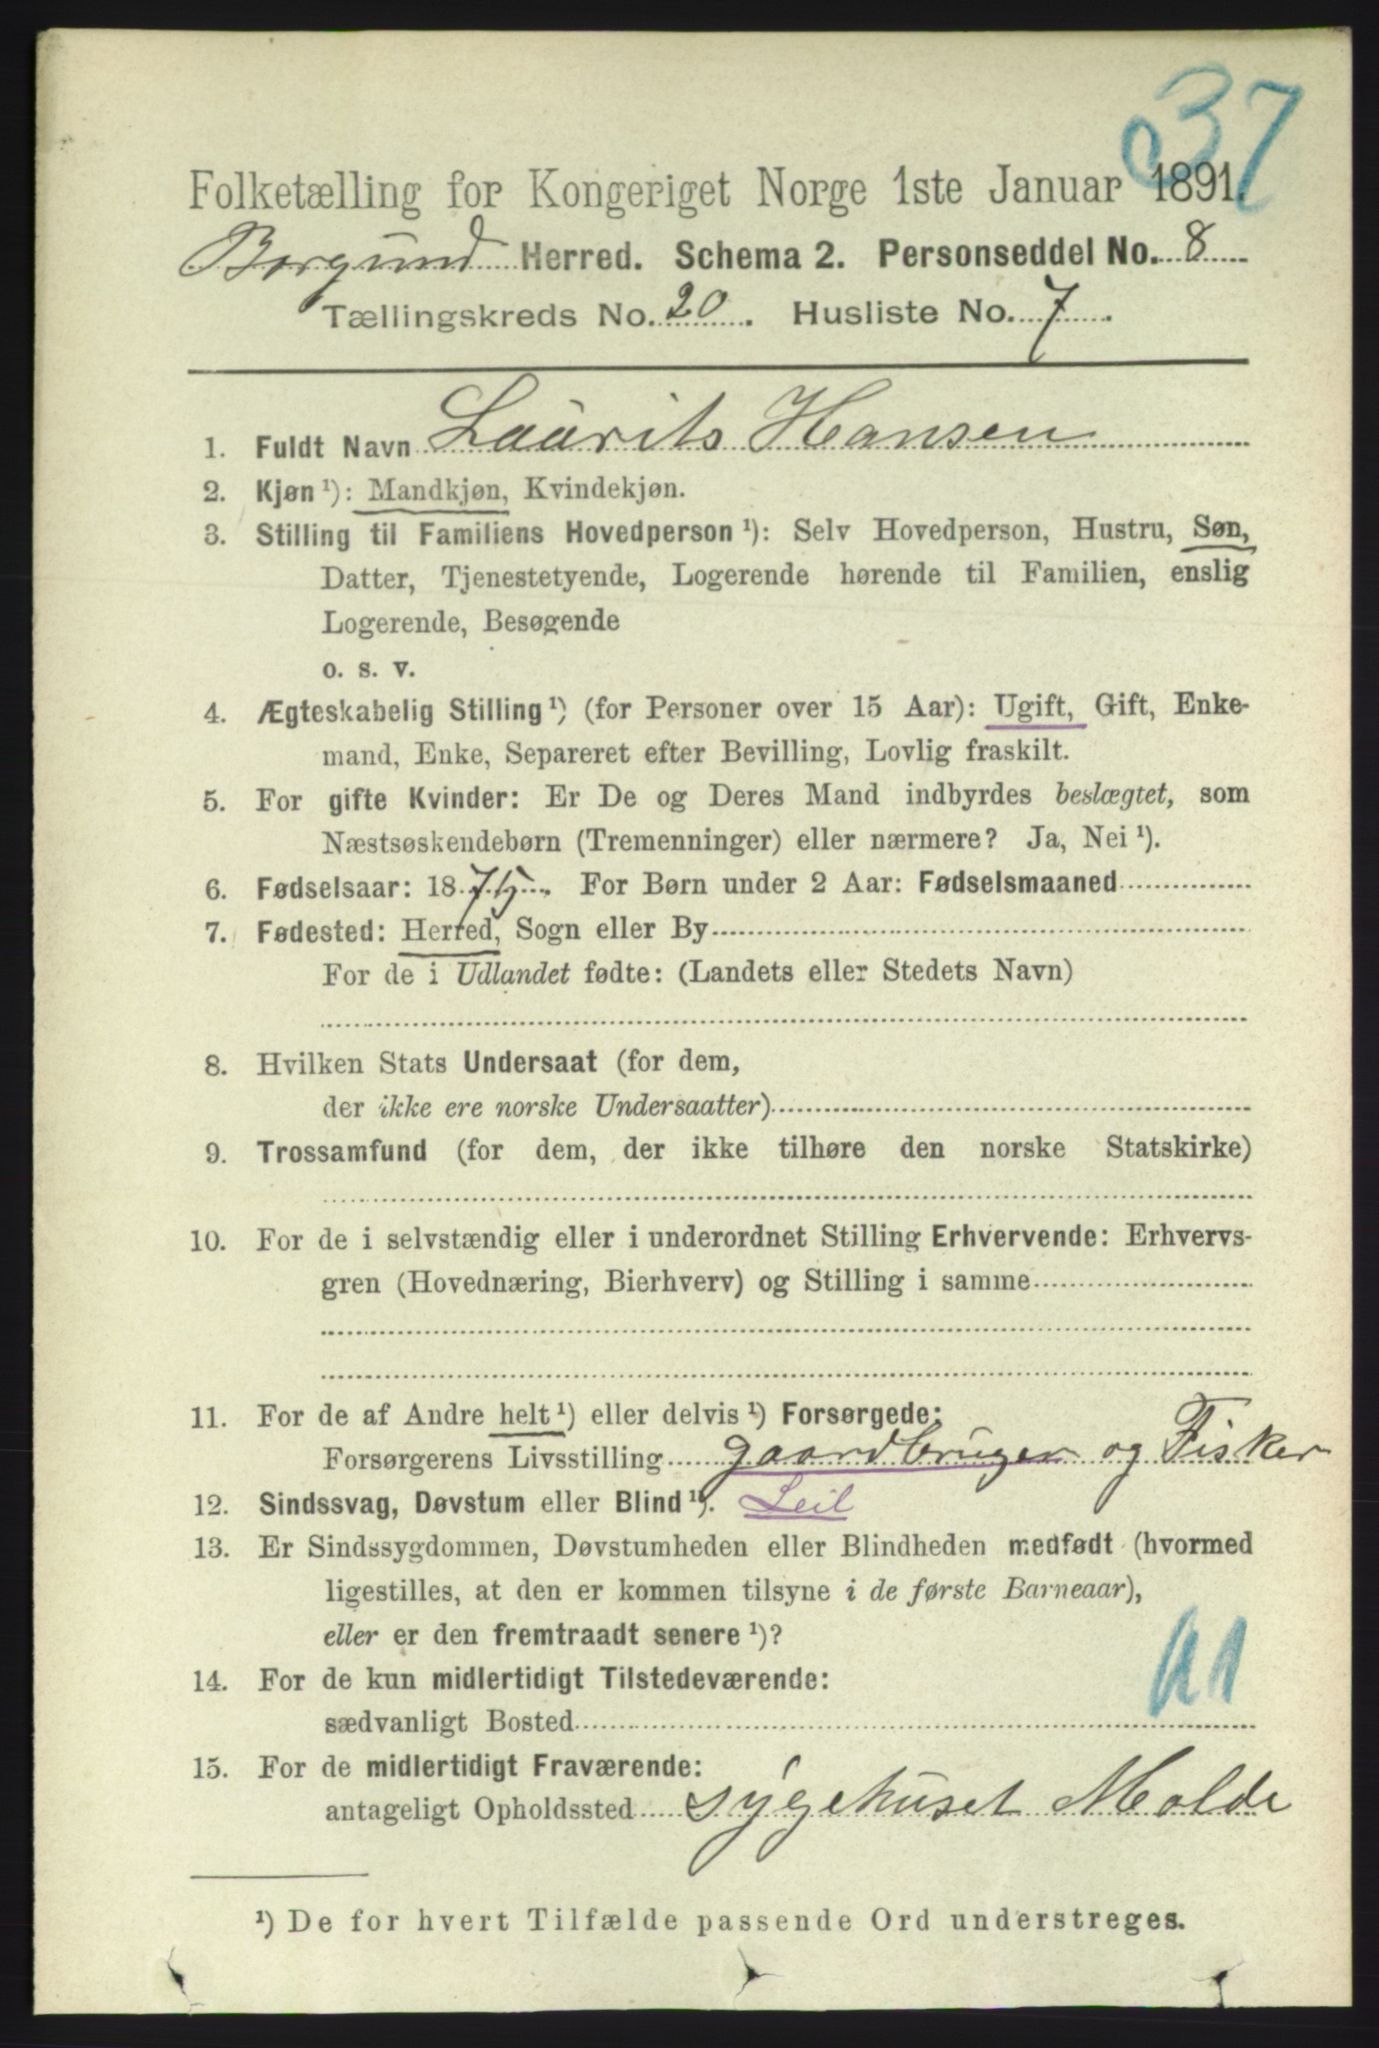 37
Folketælling for Kongeriget Norge 1ste Januar 1891.
Borgund Herred. Schema 2. Personseddel No. 8
Tællingskreds No. 20. Husliste No. 7.
1. Fuldt Navn Laurits Hansen
2. Kjøn ¹): Mandkjøn, Kvindekjøn.
3. Stilling til Familiens Hovedperson ¹): Selv Hovedperson, Hustru, Søn,
Datter, Tjenestetyende, Logerende hørende til Familien, enslig
Logerende, Besøgende
o. s. v.
4. Ægteskabelig Stilling ¹) (for Personer over 15 Aar): Ugift, Gift, Enke-
mand, Enke, Separeret efter Bevilling, Lovlig fraskilt.
5. For gifte Kvinder: Er De og Deres Mand indbyrdes beslægtet, som
Næstsøskendebørn (Tremenninger) eller nærmere? Ja, Nei ¹).
6. Fødselsaar: 1875. For Børn under 2 Aar: Fødselsmaaned
7. Fødested: Herred, Sogn eller By
For de i Udlandet fødte: (Landets eller Stedets Navn)
8. Hvilken Stats Undersaat (for dem,
der ikke ere norske Undersaatter)
9. Trossamfund (for dem, der ikke tilhøre den norske Statskirke)
10. For de i selvstændig eller i underordnet Stilling Erhvervende: Erhvervs-
gren (Hovednæring, Bierhverv) og Stilling i samme
11. For de af Andre helt ¹) eller delvis ¹) Forsørgede:
Forsørgerens Livsstilling gaardbruger og Fisker
12. Sindssvag, Døvstum eller Blind ¹). Leil
13. Er Sindssygdommen, Døvstumheden eller Blindheden medfødt (hvormed
ligestilles, at den er kommen tilsyne i de første Barneaar),
eller er den fremtraadt senere ¹)?
14. For de kun midlertidigt Tilstedeværende:
sædvanligt Bosted
15. For de midlertidigt Fraværende:
antageligt Opholdssted sygehuset Molde
¹) De for hvert Tilfælde passende Ord understreges.